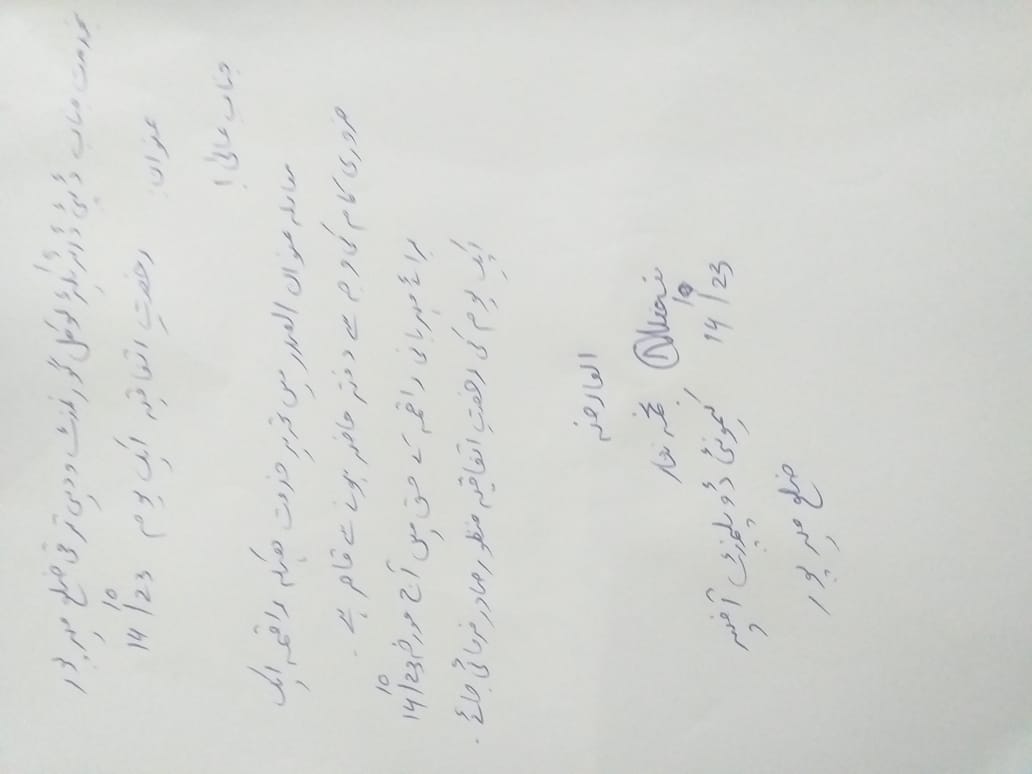 بخدمت جناب ڈپٹی ڈائریکٹر لوکل گورنمنٹ و دیہی ترقی ضلع میرپور
عنوان: رخصتِ اتفاقیہ ایک یوم 14/10/23
جناب عالی!
معاملہ عنوان الصدر میں تحریر خدمت ہیکہ راقمہ ایک
ضروری کام کی وجہ سے دفتر حاضر ہونے سے قاصر ہے۔
برائے مہربانی راقمہ کے حق میں آج مورخہ 14/10/23
ایک یوم کی رخصتِ اتفاقیہ منظور صادر فرمائی جائے۔
العارضہ
نجمہ
14/10/23 کمیونٹی ڈویلپمنٹ آفیسر
ضلع میرپور